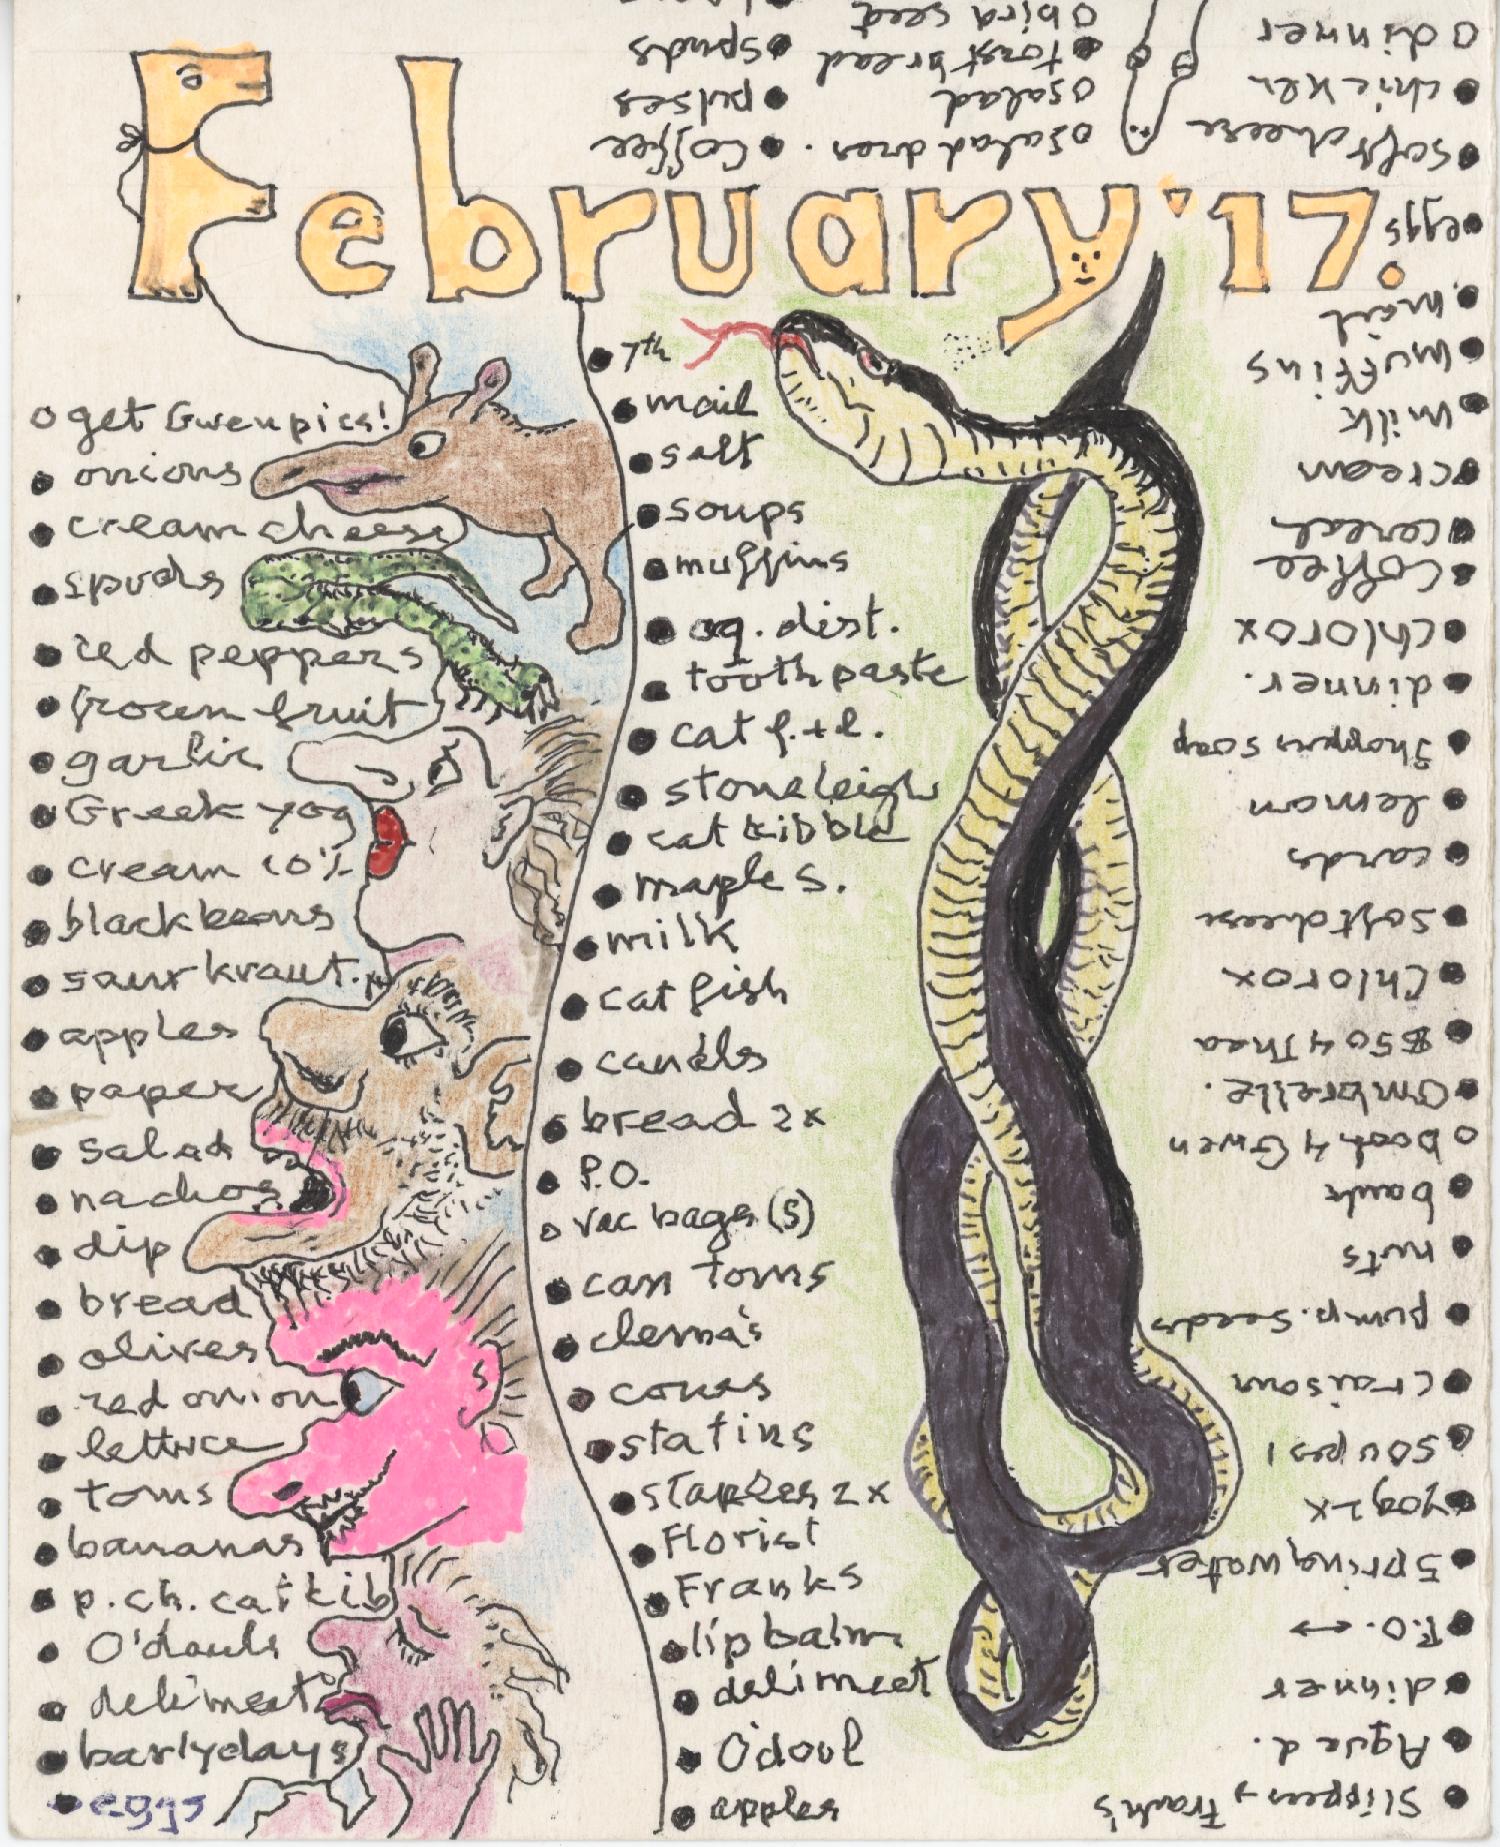 February '17.
o get Gwen pics!
• onions
• cream cheese
• spuds
• red peppers
• frozen fruit
• garlic
• Greek yog
• cream 10%
• black beans
• saurkraut.
• apples
• paper
• salad
• nachos
• dip
• bread
• olives
• red onion
• lettuce
• toms
• bananas
• p.ch. cat kib
• O'douls
• deli meat
• barlydays
• eggs
• 7th
• mail
• salt
• soups
• muffins
• aq. dist.
• tooth paste
• cat f. + l.
• stoneleigh
• cat kibble
• maple s.
• milk
• cat fish
• candls
• bread 2x
• P.O.
o vac bags (S)
• can toms
• clema's
• cones
• statins
• staples 2x
• Florist
• Franks
• lip balm
• deli meet
• O'doul
• apples
• Slippers, Frank's
• Aqua d.
• dinner
• P.O. ↔
• Spring water
• yog 2x
• soups 1
• craisons
• pump. seeds
• nuts
• bank
o book 4 Gwen
• Ombrelle.
• $50 4 Thea
• Chlorox
• soft cheese
• cards
• lemon
• Shoppers soap
• dinner.
• Chlorox
• Coffee
• cereal
• cream
• milk
• muffins
• mail
• eggs
• soft cheese
• chicken
o dinner
o salad dres.
o salad
• toast bread
o bird seed
• Coffee
• pulses
• spuds